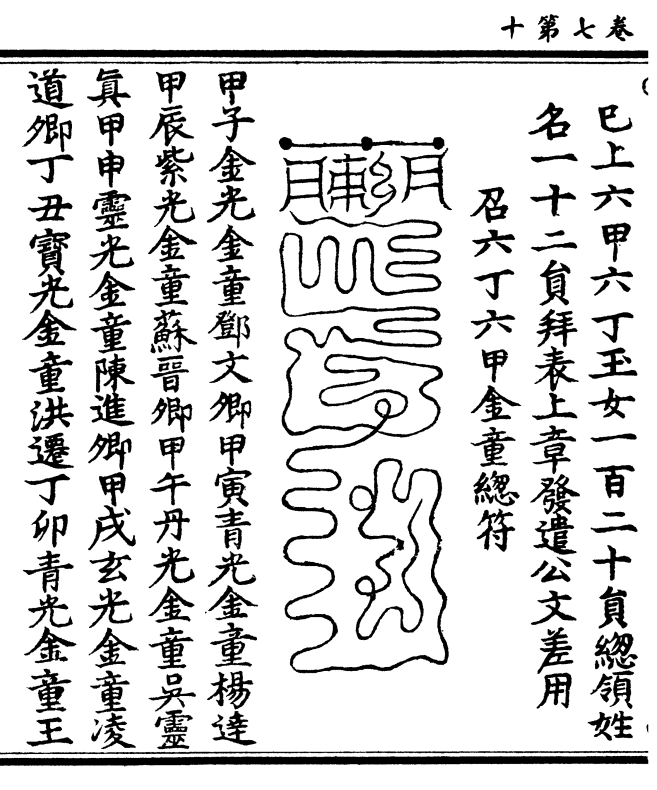 卷七第十
已上六甲六丁玉女一百二十員總領姓
名一十二員拜表上章發遣公文差用
召六丁六甲金童總符
甲子金光金童鄧文卿甲寅青光金童楊達
甲辰紫光金童蘇晉卿甲午丹光金童吳靈
眞甲申靈光金童陳進卿甲戌玄光金童凌
道卿丁丑寶光金童洪遷丁卯青光金童王